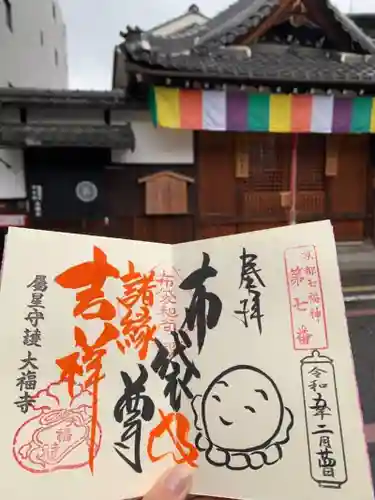 京都七福神
第七番
令和五年二月
奉拝
布袋尊
諸縁
吉祥
屬星守護 大福寺
福